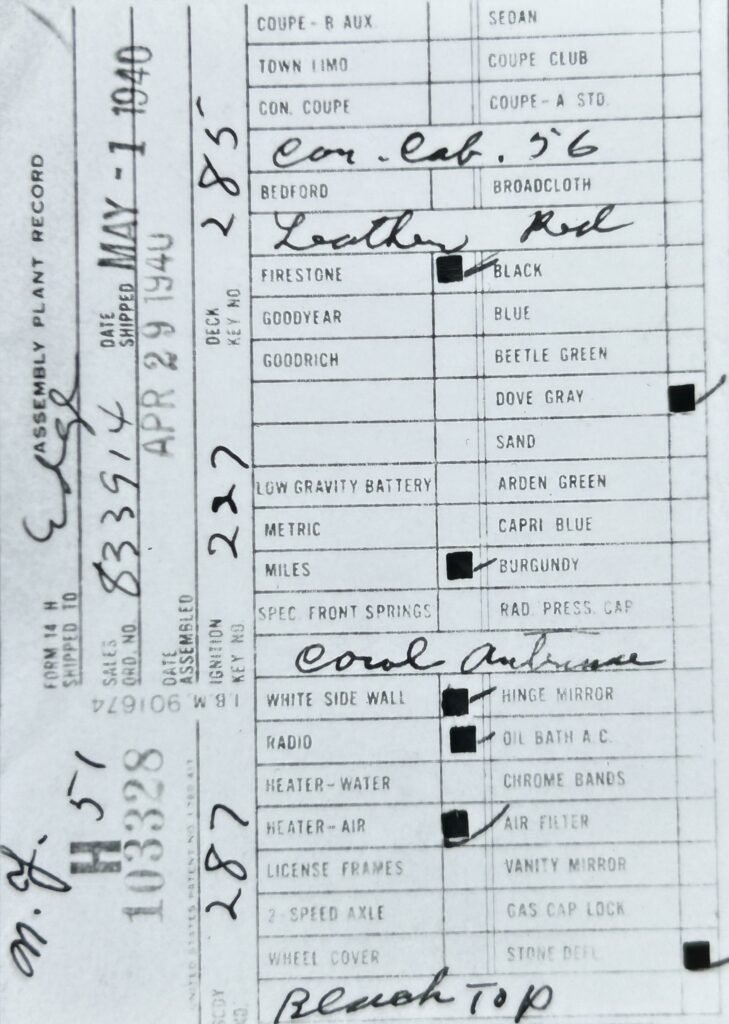 COUPE-B AUX. SEDAN
TOWN LIMO COUPE CLUB
CON. COUPE COUPE-A STD.
Con. Cab. 56
BEDFORD BROADCLOTH
Leather Red
FIRESTONE BLACK
GOODYEAR BLUE
GOODRICH BEETLE GREEN
DOVE GRAY
SAND
LOW GRAVITY BATTERY ARDEN GREEN
METRIC CAPRI BLUE
MILES BURGUNDY
SPEC. FRONT SPRINGS RAD. PRESS. CAP
Cowl Antenna
WHITE SIDE WALL HINGE MIRROR
RADIO OIL BATH A.C.
HEATER-WATER CHROME BANDS
HEATER-AIR AIR FILTER
LICENSE FRAMES VANITY MIRROR
2-SPEED AXLE GAS CAP LOCK
WHEEL COVER STONE DEFL.
Black Top
ASSEMBLY PLANT RECORD
FORM 14 H
SHIPPED TO
SALES ORD. NO. 833914 DATE SHIPPED MAY -1 1940
DATE ASSEMBLED APR 29 1940
IGNITION KEY NO 227 DECK KEY NO 285
I.B.M. 901674
N.Y. 51
H
103328
UNITED STATES PATENT NO.
287